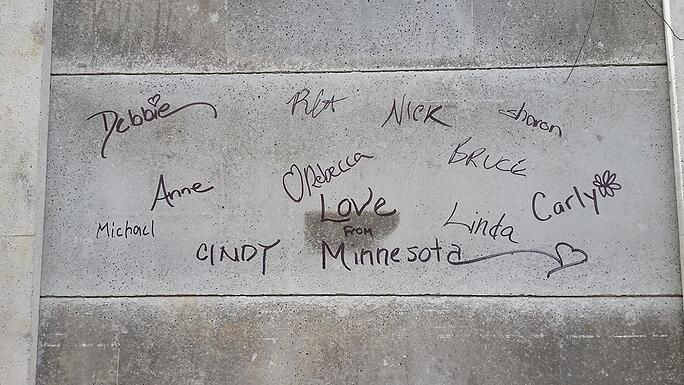 Debbie
NICK
Sharon
BRUCE
Rebecca
Anne
Carly
LOVE
Linda
FROM
Michael
CINDY
Minnesota